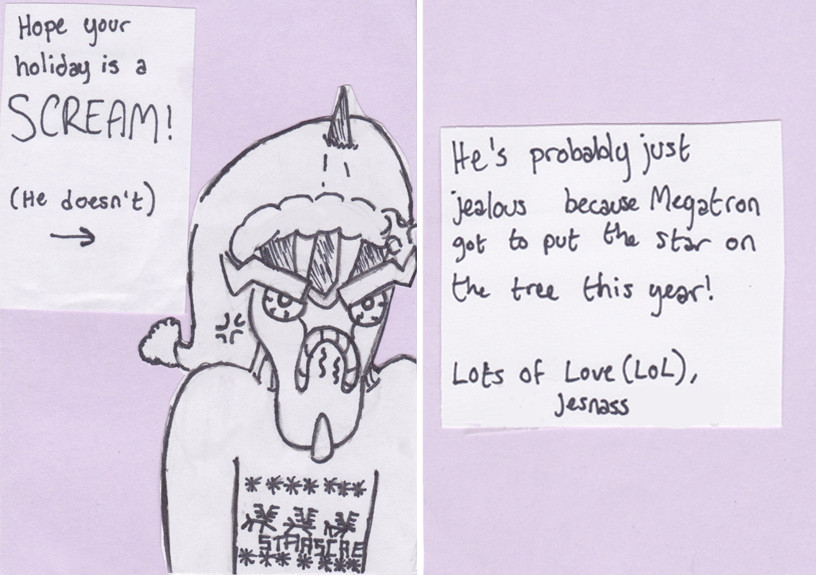 Hope your
holiday is a
SCREAM!
(He doesn't)
STARSCRE
He's probably just
jealous because Megatron
got to put the star on
the tree this year!
Lots of Love (LoL),
Jesnass